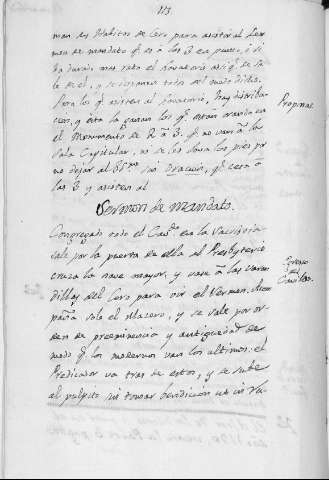 113
man los Habitos de Coro para asistir al Ser
mon de mandato q.e es a las 3 en punto, ó si
ha durado mas rato el Lavatorio asi q.e se sa
le de el, y se
Para los q.e asisten al Lavatorio, hay distribu
cion, y esta la ganan los q.e estan orando en
el Monumento de 2 a 3. q.e no van a la
Sala Capitular, no se les lava los pies por
no dejar al SS.mo sin Oracion, q.e cesa a
las 3 y asisten al
Propinas
Sermon de Mandato.
Congregado todo el Cav.do en la Sacristia
sale por la puerta de ella al Presbyterio
cruza la nave mayor, y vase a las varan
dillas del Coro para oir el Sermon. Acom
paña solo el Macero, y se sale por or
den de preeminencia y antiguedad de
modo q.e los modernos van los ultimos: el
Predicador va tras de estos, y se sube
al pulpito sin tomar bendicion
del
Cavildo.